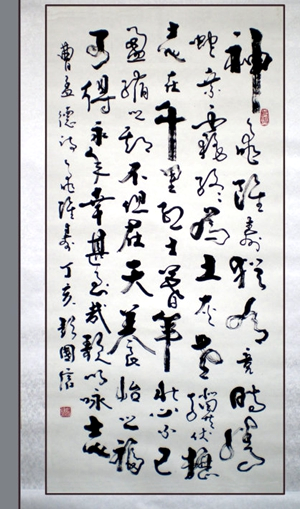 神龜雖壽猶有竟時騰
蛇乘霧終為土灰老驥伏櫪
志在千里烈士暮年壯心不已
盈縮之期不但在天養怡之福
可得永年幸甚至哉歌以咏志
曹孟德詩龜雖壽丁亥國信